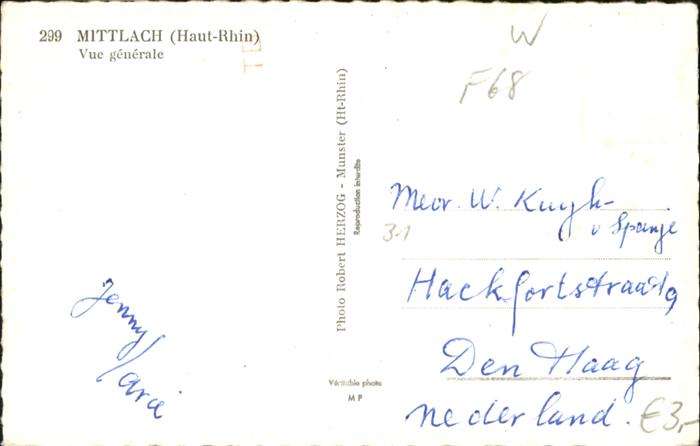 299 MITTLACH (Haut-Rhin)
Vue générale
W
F68
Photo Robert HERZOG - Munster (Ht-Rhin)
Reproduction interdite
Mevr. W. Kuyk-
v Spanje
31
Hackfortstraat 19
Den Haag
nederland.
€3,-
Jenny
Arie
Véritable photo
M P